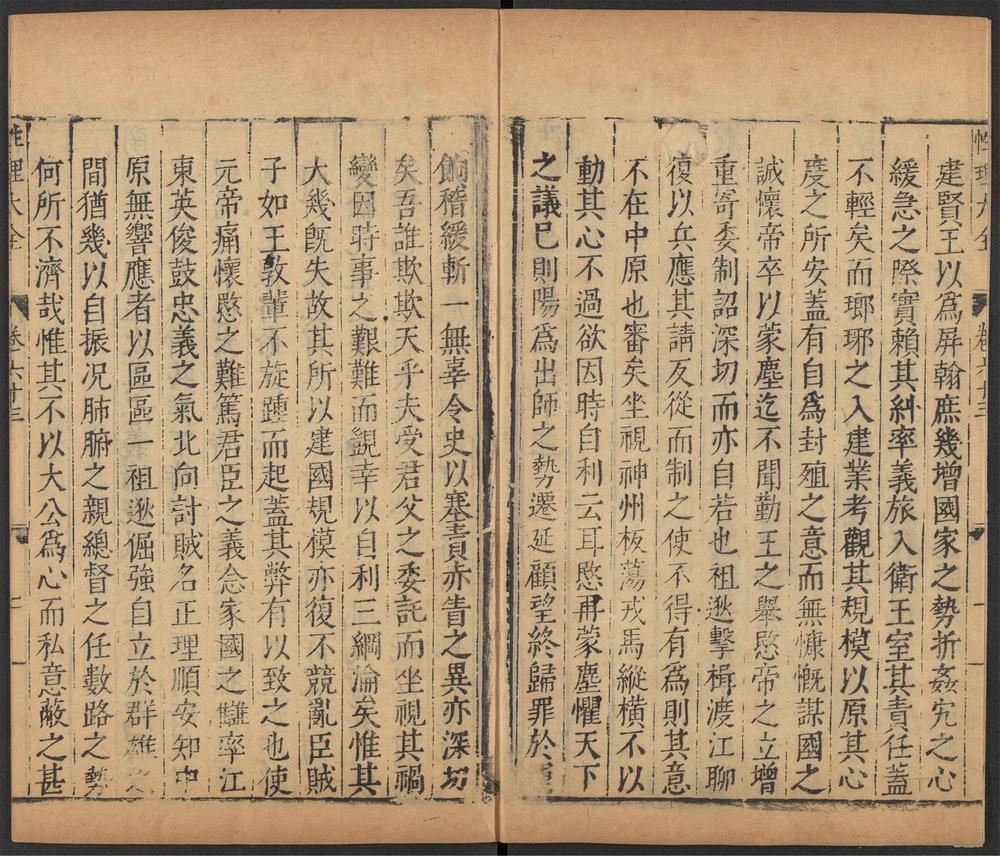 性理大全 卷六十三
建賢王以爲屏翰庶幾增國家之勢折姦宄之心
緩急之際實賴其糾率義旅入衛王室其責任蓋
不輕矣而瑯琊之入建業考觀其規模以原其心
度之所安蓋有自爲封殖之意而無慷慨謀國之
誠懷帝卒以蒙塵迄不聞勤王之舉愍帝之立增
重寄委制詔深切而亦自若也祖逖擊楫渡江聊
復以兵應其請反從而制之使不得有爲則其意
不在中原也審矣坐視神州板蕩戎馬縱橫不以
動其心不過欲因時自利云耳愍再蒙塵懼天下
之議已則陽爲出師之勢遷延顧望終歸罪於運
餉稽緩斬一無辜令史以塞責赤眚之異亦深切
矣吾誰欺欺天乎夫受君父之委託而坐視其禍
變因時事之艱難而覬幸以自利三綱淪矣惟其
大幾旣失故其所以建國規模亦復不競亂臣賊
子如王敦輩不旋踵而起蓋其弊有以致之也使
元帝痛懷愍之難篤君臣之義念家國之讎率江
東英俊鼓忠義之氣北向討賊名正理順安知中
原無響應者以區區一祖逖倔強自立於群雄之
間猶幾以自振况肺腑之親總督之任數路之勢
何所不濟哉惟其不以大公爲心而私意蔽之甚
性理大全 卷六十三